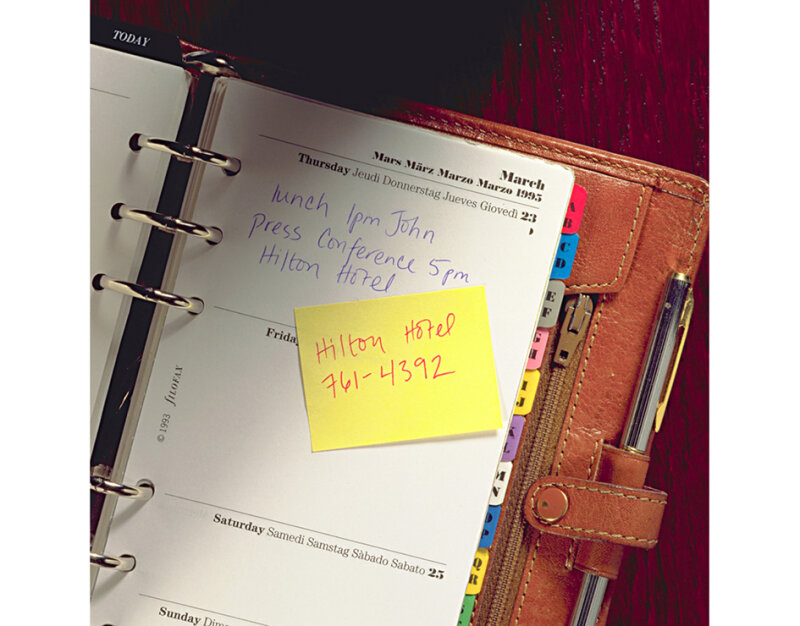 TODAY
March
Mars März Marzo Marzo 1995
Thursday Jeudi Donnerstag Jueves Giovedì 23
lunch 1pm John
Press Conference 5pm
Hilton Hotel
Hilton Hotel
761-4392
© 1993 fILOFAX
Saturday Samedi Samstag Sàbado Sabato 25
Sunday
A
B
C
D
E
F
G
H
I
J
K
L
M
N
O
P
Q
R